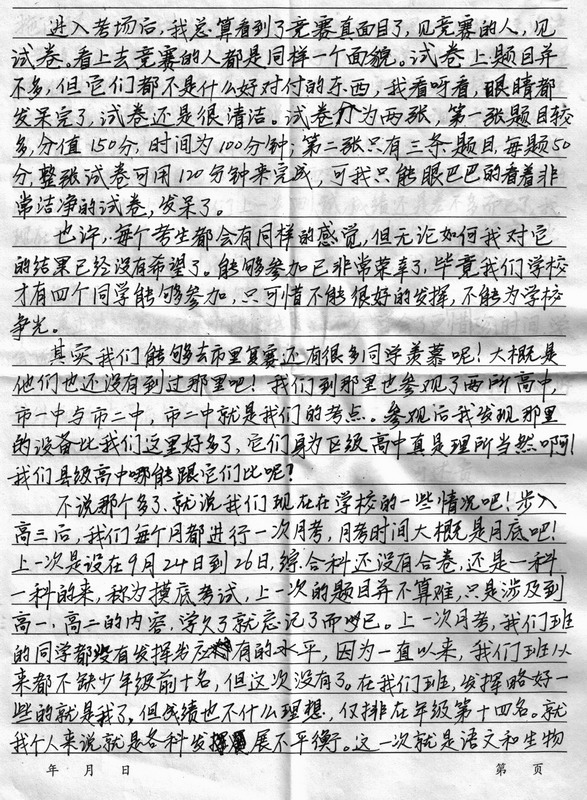 进入考场后,我总算看到了竞赛真面目了,见竞赛的人,见
试卷。看上去竞赛的人都是同样一个面貌。试卷上题目并
不多,但它们都不是什么好对付的东西,我看呀看,眼睛都
发呆完了,试卷还是很清洁。试卷分为两张,第一张题目较
多,分值150分,时间为100分钟;第二张只有三条题目,每题50
分,整张试卷可用120分钟来完成,可我只能眼巴巴的看着非
常洁净的试卷,发呆了。
也许,每个考生都会有同样的感觉,但无论如何我对它
的结果已经没有希望了。能够参加已非常荣幸了,毕竟我们学校
才有四个同学能够参加,只可惜不能很好的发挥,不能为学校
争光。
其实我们能够去市里复赛还有很多同学羡慕呢!大概是
他们也还没有到过那里吧!我们到那里也参观了两所高中,
市一中与市二中,市二中就是我们的考点。参观后我发现那里
的设备比我们这里好多了,它们身为区级高中真是理所当然啊!
我们县级高中哪能跟它们比呢?
不说那个多了,就说我们现在在学校的一些情况吧!步入
高三后,我们每个月都进行一次月考,月考时间大概是月底吧!
上一次是设在9月24日到26日,综合科还没有合卷,还是一科
一科的来,称为摸底考试,上一次的题目并不算难,只是涉及到
高一、高二的内容,学久了就忘记了而已。上一次月考,我们班
的同学都没有发挥出应有的水平,因为一直以来,我们班以
来都不缺少年级前十名,但这次没有了。在我们班,发挥略好一
些的就是我了,但成绩也不什么理想,仅排在年级第十四名。就
我个人来说就是各科发展不平衡。这一次就是语文和生物
年 月 日 第 页